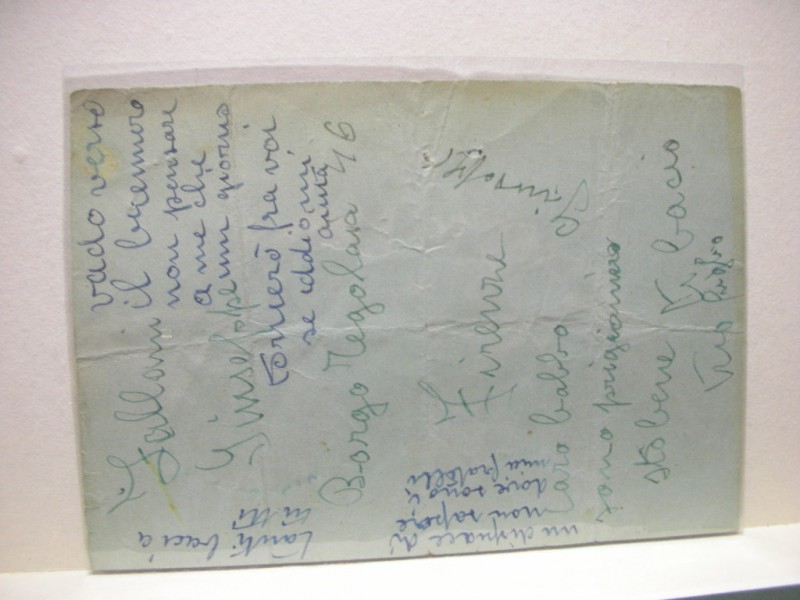 Galloni
Giuseppe
Borgo Tegolaia 46
Firenze
Caro babbo
sono prigioniero
sto bene Vi bacio
Tuo figlio
vado verso
il brennero
non pensare
a me che
un giorno
tornerò fra voi
se iddio mi
aiuta
mi dispiace di
non sapere
dove sono i
miei fratelli
tanti baci a
tutti